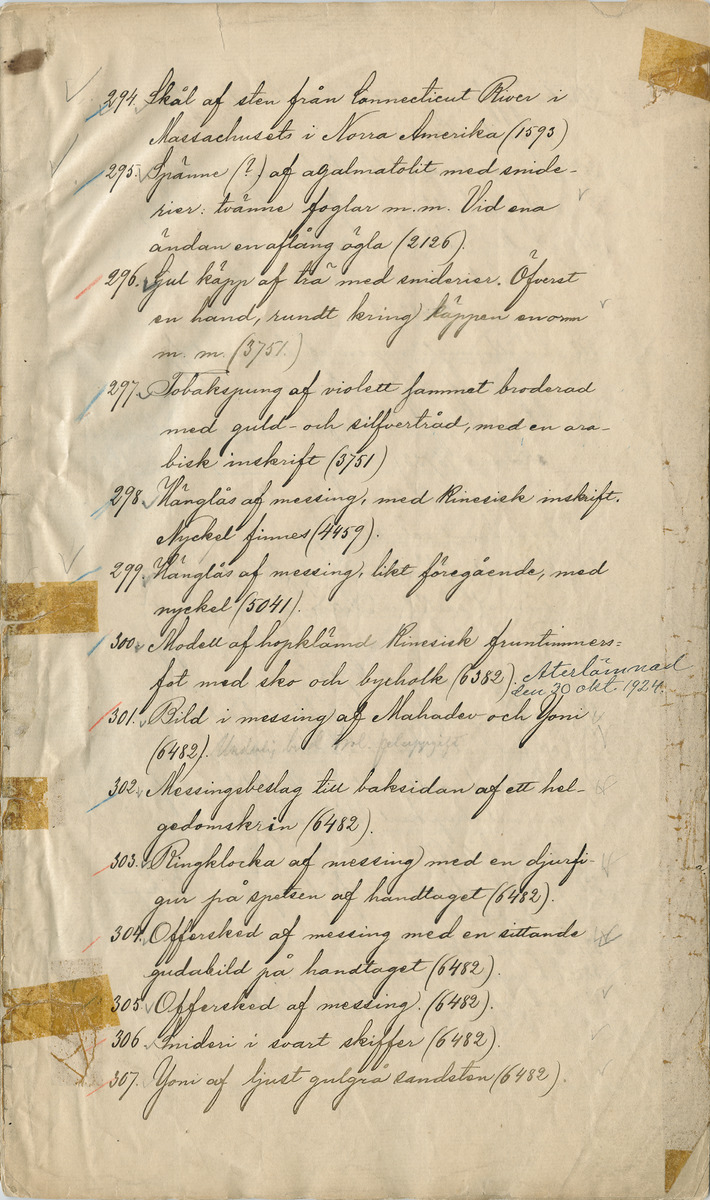 294. Skål af sten från Connecticut River i
Massachusets i Norra Amerika (1593)
295. Spänne (?) af agalmatolit med snide-
rier: tvänne foglar m. m. Vid ena
ändan en aflång ögla (2126).
296. Gul käpp af trä med sniderier. Öfverst
en hand, rundt kring käppen en orm
m. m. (3751.)
297. Tobakspung af violett sammet broderad
med guld- och silfvertråd, med en ara-
bisk inskrift (3751)
298. Hänglås af messing, med kinesisk inskrift.
Nyckel finnes (4459).
299. Hänglås af messing, likt föregående, med
nyckel (5041).
300. Modell af hopklämd kinesisk fruntimmers=
fot med sko och byxholk (6382). Återlämnad
den 30 okt 1924.
301. Bild i messing af Mahadev och Yoni
(6482).
302. Messingsbeslag till baksidan af ett hel-
gedomskrin (6482).
303. Ringklocka af messing med en djurfi-
gur på spetsen af handtaget (6482).
304. Offersked af messing med en sittande
gudabild på handtaget (6482).
305. Offersked af messing. (6482).
306. Snideri i svart skiffer (6482).
307. Yoni af ljust gulgrå sandsten (6482).